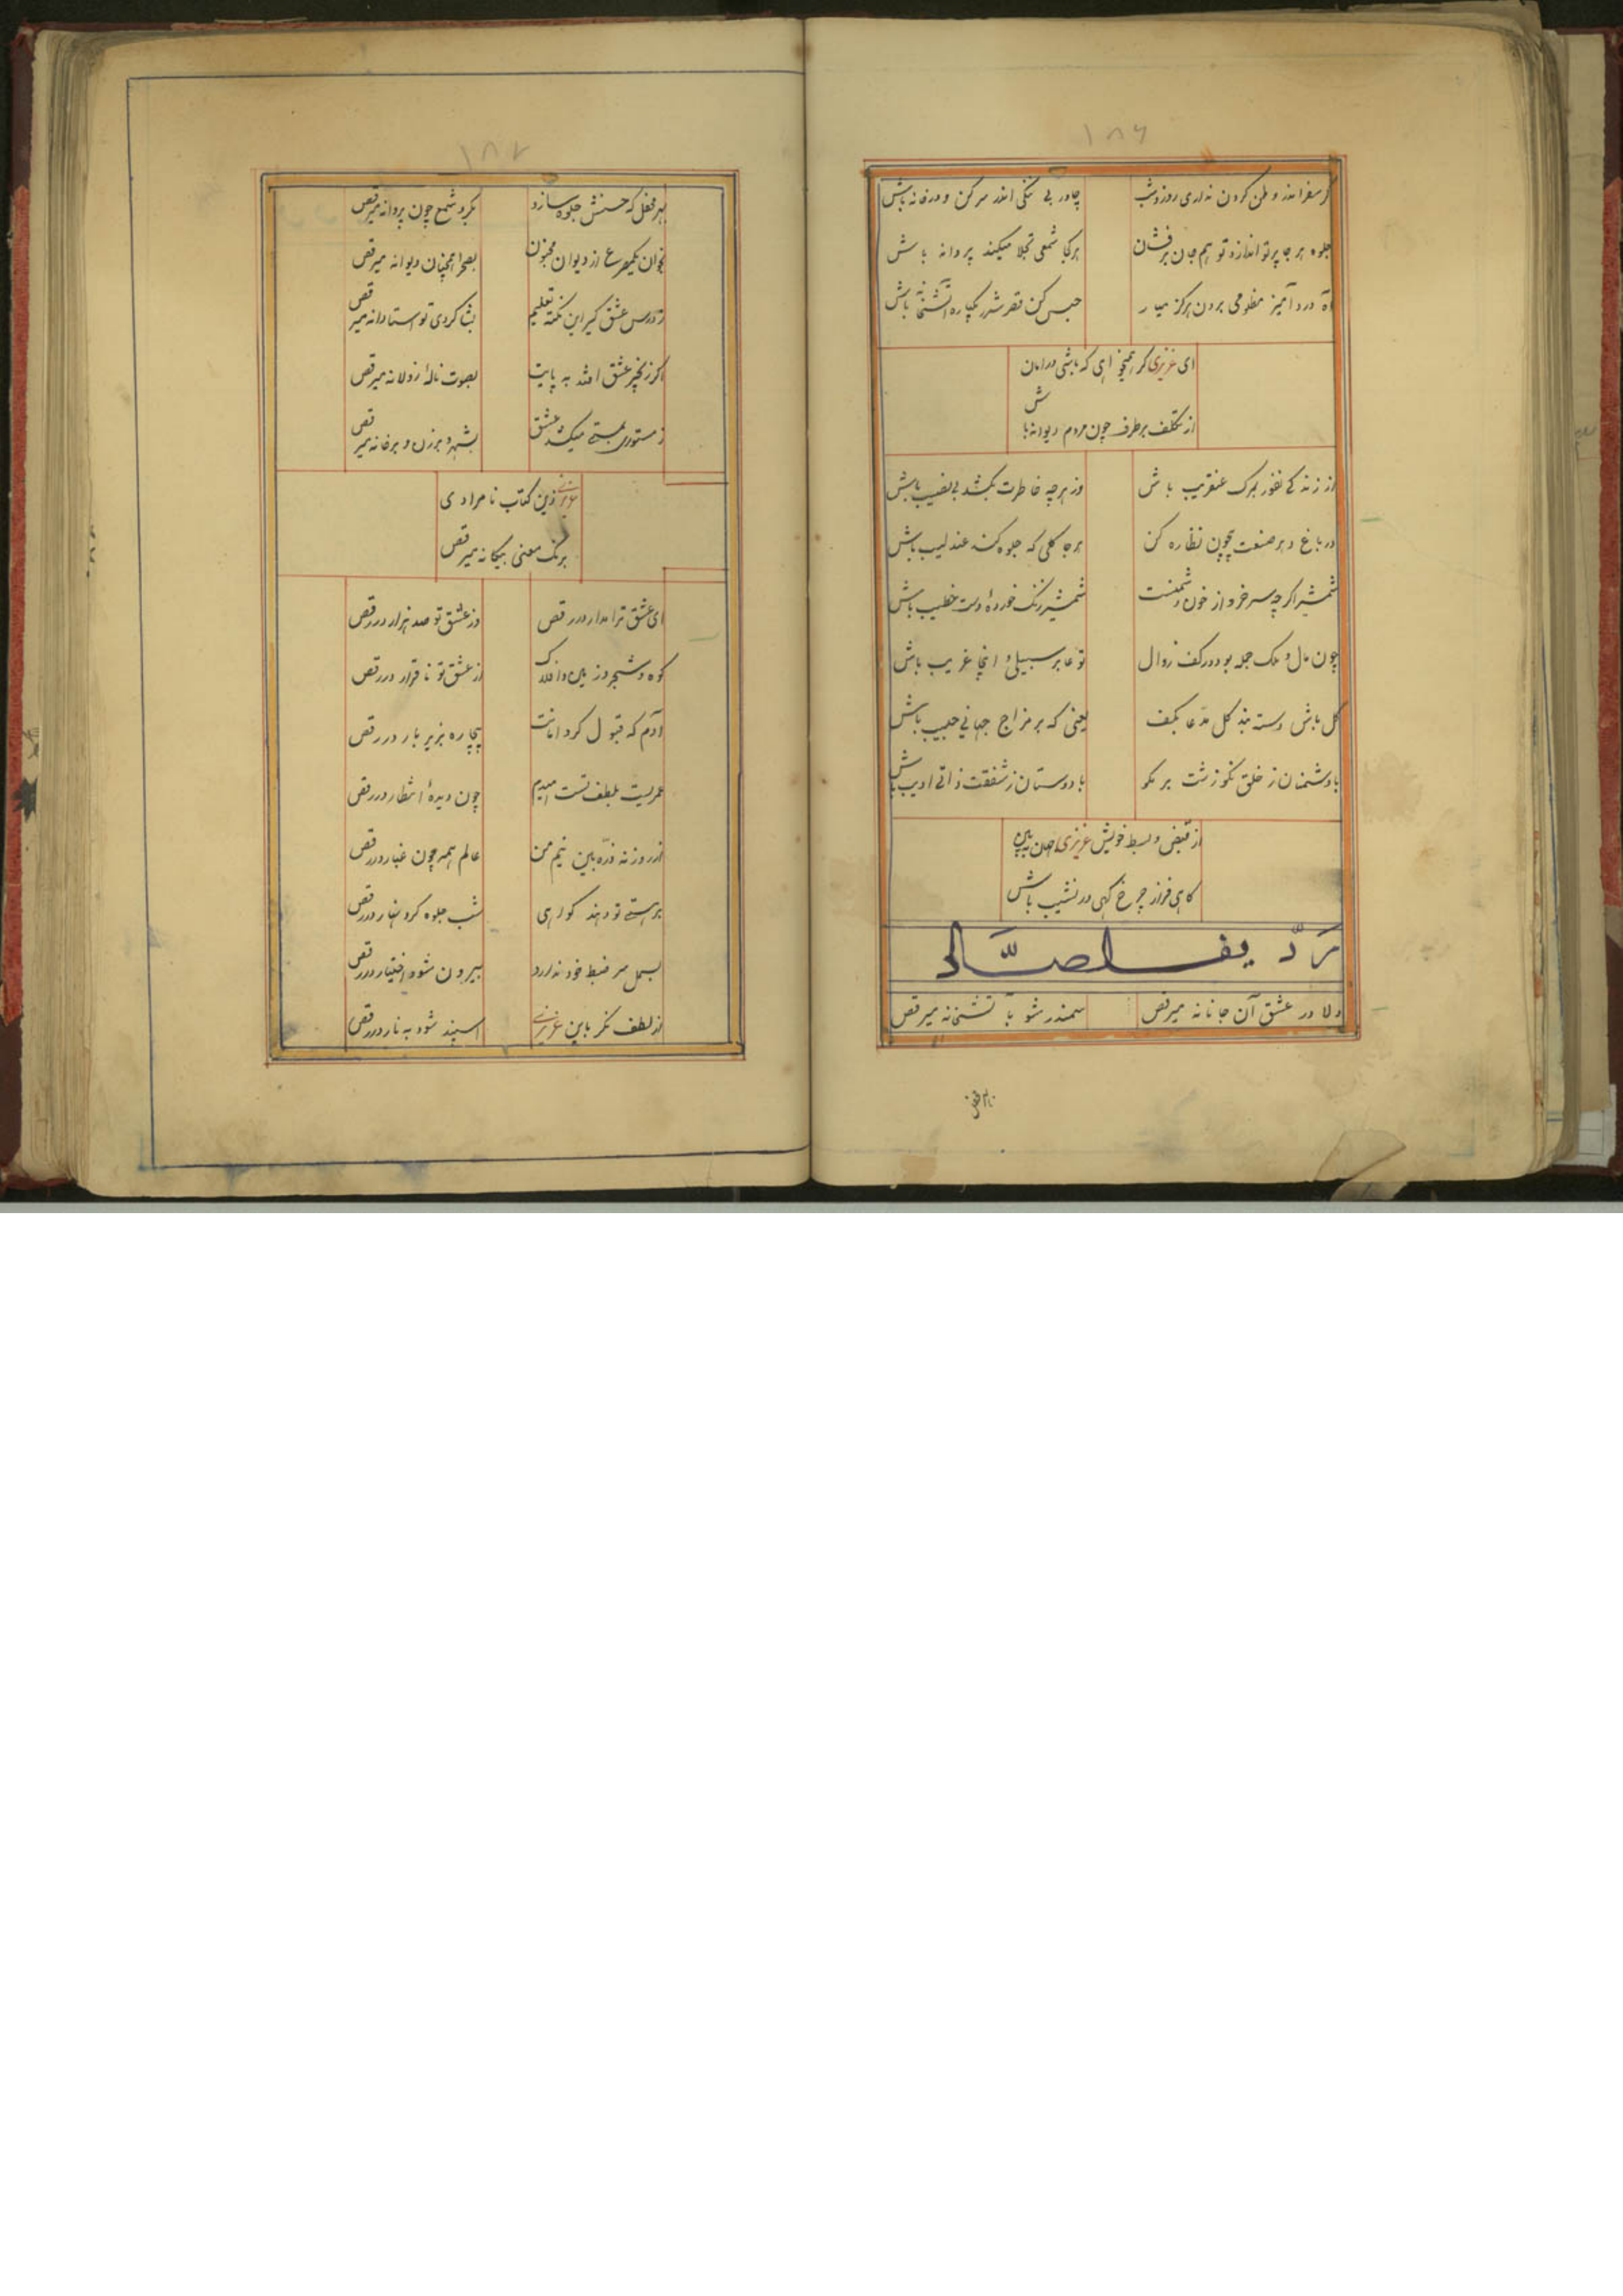 ۱۸۶
گر سفر اندر وطن کردن نداری روز و شب
چادر بی ننگی اندر سر کن و در خانه باش
جلوه هر جا پرتو اندازد تو هم جان برفشان
هر کجا شمعی تجلا میکند پروانه باش
آه درد آمیز مظلومی برون هرگز میار
حبس کن قصر شرر یکپاره آتشخانه باش
ای عزیزی گر همیخواهی که باشی در امان
از تکلف برطرف چون مردم دیوانه باش
از زندگی نفور بمرگ عنقریب باش
وز هرچه خاطرت بکشد بی نصیب باش
در باغ دهر صنعت بیچون نظاره کن
هر جا گلی که جلوه کند عندلیب باش
شمشیر اگرچه سرخرو از خون دشمنست
شمشیر زنگ خوردهٔ دست خطیب باش
چون مال و ملک جمله بود در کف زوال
تو عابر سبیلی و اینجا غریب باش
گل باش دسته بند گل مدعا بکف
یعنی که بر مزاج جهانی حبیب باش
با دشمنان ز خلق نکو زشت بر مگو
با دوستان ز شفقت ذاتی ادیب باش
از قبض و بسط خویش عزیزی جهان ببین
گاهی فراز چرخ گهی در نشیب باش
ردیف الصاد
دلا در عشق آن جانانه میرقص
سمندر شو بآتشخانه میرقص
۱۸۷
بهر محفل که حسنش جلوه سازد
بگرد شمع چون پروانه میرقص
بخوان یکمصرع از دیوان مجنون
بصحرا همچنان دیوانه میرقص
ز درس عشق گیر این نکته تعلیم
بشاگردی تو استادانه میرقص
اگر زنجیر عشق افتد به پایت
بصوت نالهٔ زولانه میرقص
ز مستوری بمستی میکشد عشق
بشهر و برزن و هر خانه میرقص
عزیزی زین کتاب نامرادی
برنگ معنی بیگانه میرقص
ای عشق ترا مدار در رقص
وز عشق تو صد هزار در رقص
کوه و شجر و زمین و افلاک
از عشق تو ناقرار در رقص
آدم که قبول کرد امانت
بیچاره بزیر بار در رقص
عمریست بلطف تست امیدم
چون دیدهٔ انتظار در رقص
از روزنه ذره بین نیم من
عالم همه چون غبار در رقص
بر هستی تو دهند گواهی
شب جلوه کرد نهار در رقص
بسمل سر ضبط خود ندارد
بیرون شود اختیار در رقص
از لطف نگر باین عزیزی
اسپند شود به نار در رقص